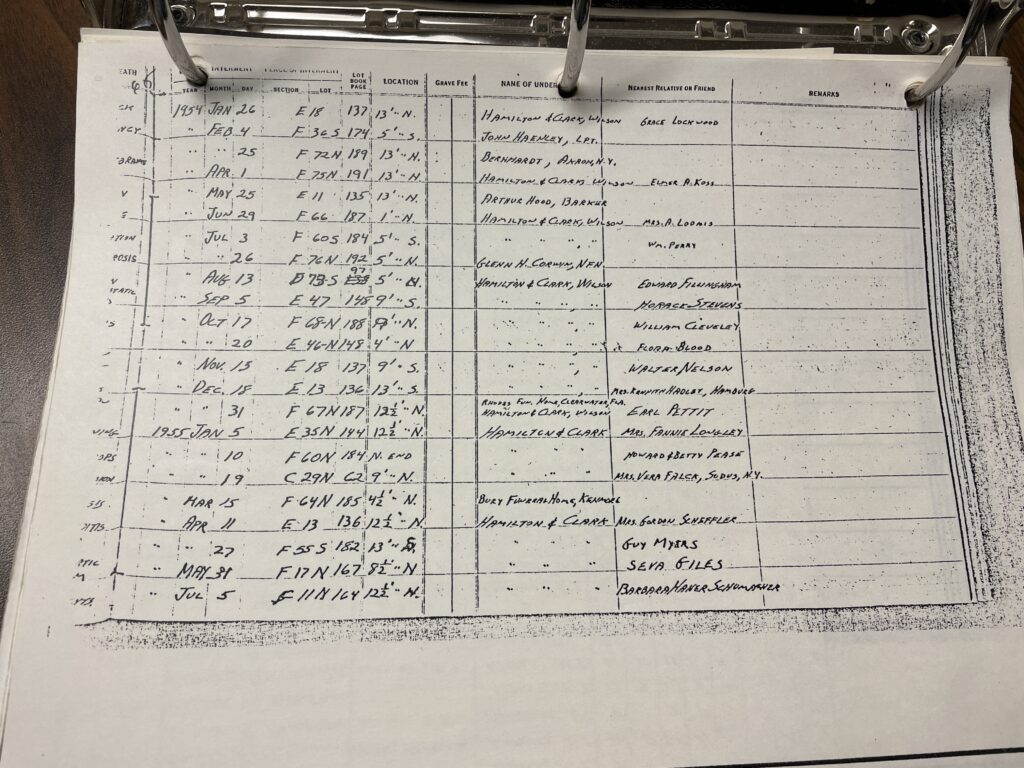 EATH INTERMENT PLACE OF INTERMENT LOT BOOK PAGE LOCATION GRAVE FEE NAME OF UNDER NEAREST RELATIVE OR FRIEND REMARKS
YEAR MONTH DAY SECTION LOT
1954 JAN 26 E 18 137 13' " N. HAMILTON & CLARK, WILSON GRACE LOCKWOOD
NCY " FEB. 4 F 36 S 174 5' " S. JOHN HAENLEY, LPT.
" " 25 F 72N 189 13' " N. BERNHARDT, AKRON, N.Y.
" APR. 1 F 75N 191 13' " N. HAMILTON & CLARK, WILSON ELMER A. KOSS
V " MAY 25 E 11 135 13' " N. ARTHUR HOOD, BARKER
E " JUN 29 F 66 187 1' " N. HAMILTON & CLARK, WILSON MRS. A. LOOMIS
" JUL 3 F 60S 184 5' " S. " " " " WM. PERRY
POSIS " " 26 F 76N 192 5' " N. GLENN H. CORWIN, NFN
V " AUG 13 D 73-S 97 5' " HAMILTON & CLARK, WILSON EDWARD FILLINGHAM
" SEP 5 E 47 148 9' " S. " " " " HORACE STEVENS
'S " OCT 17 F 68-N 188 9' " N. " " " " WILLIAM CLEVELEY
" " 20 E 46-N 148 4' " N. " " " " FLORA BLOOD
" NOV. 15 E 18 137 9' " S. " " " " WALTER NELSON
S " DEC. 18 E 13 136 13' " S. " " " MRS. KENNETH HADLEY, HAMBURG
" " 31 F 67N 187 12½' " N. RHODES FUN. HOME, CLEARWATER, FLA. HAMILTON & CLARK, WILSON EARL PETTIT
1955 JAN 5 E 35N 144 12½' " N. HAMILTON & CLARK MRS. FANNIE LONGLEY
" " 10 F 60N 184 N. END " " " HOWARD & BETTY PEASE
" " 19 C 29N 62 9' " N. " " " MRS. VERA FALCK, SODUS, N.Y.
" MAR 15 F 64N 185 4½' " N. BURY FUNERAL HOME, KENMORE
" APR 11 E 13 136 12½' " N. HAMILTON & CLARK MRS. GORDON SCHEFFLER
" " 27 F 55 S 182 13' " S. " " " GUY MYERS
" MAY 31 F 17 N 167 8½' " N. " " " SEVA GILES
" JUL 5 11 N 164 12½' " N. " " " BARBARA HANER SCHUMACHER